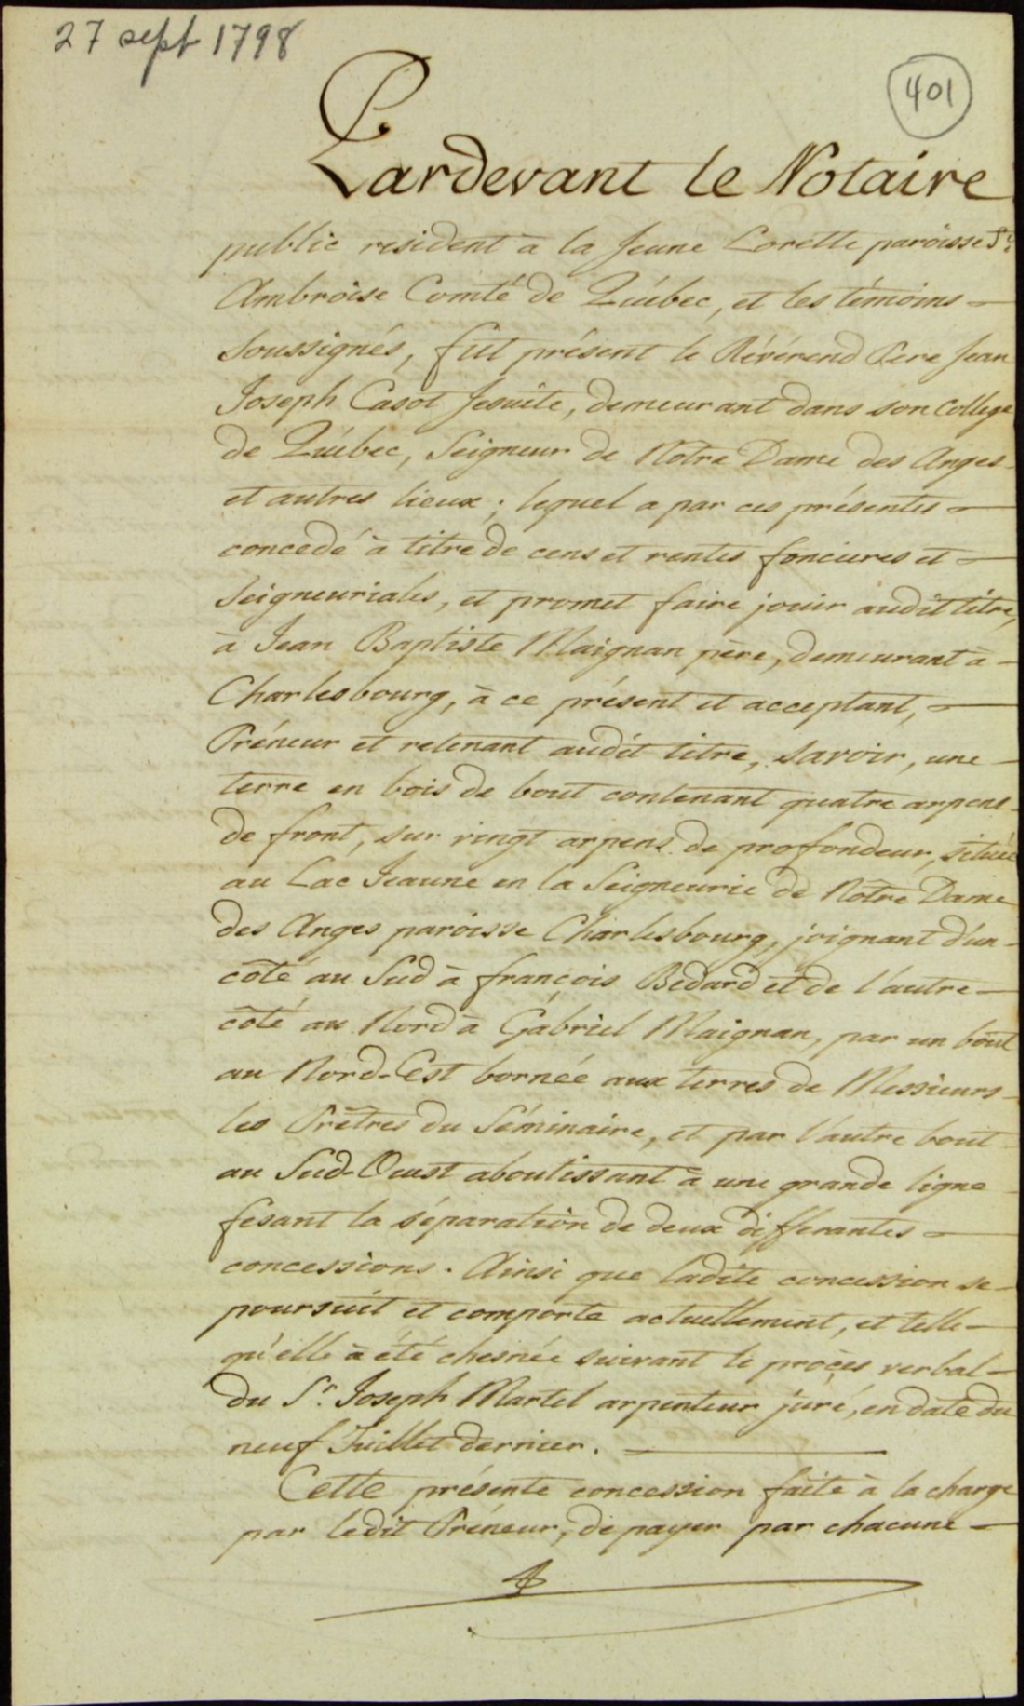 27 sept 1798
401
Pardevant le Notaire
public resident à la Jeune Lorette paroisse St
Ambroise Comté de Québec, et les témoins
soussignés, fut présent le Révérend Pere Jean
Joseph Casot Jesuite, demeurant dans son College
de Québec, Seigneur de Notre Dame des Anges
et autres lieux ; lequel a par ces présentes
concedé à titre de cens et rentes foncieres et
Seigneuriales, et promet faire jouir audit titre,
à Jean Baptiste Maignan père, demeurant à
Charlesbourg, à ce présent et acceptant,
Préneur et retenant audit titre, savoir, une
terre en bois de bout contenant quatre arpens
de front, sur vingt arpens de profondeur, située
au Lac Jeaune en la Seigneurie de Nôtre Dame
des Anges paroisse Charlesbourg, joignant d'un
côté au Sud à françois Bedard et de l'autre
côté au Nord à Gabriel Maignan, par un bout
au Nord-Est bornée aux terres de Messieurs
les Prêtres du Séminaire, et par l'autre bout
au Sud-Ouest aboutissant à une grande ligne
fesant la séparation de deux differantes
concessions. Ainsi que ladite concession se
poursuit et comporte actuellement, et telle
qu'elle à été chesnée suivant le procès verbal
du Sr. Joseph Martel arpenteur juré, en date du
neuf Juillet dernier.
Cette présente concession faite à la charge
par ledit Préneur, de payer par chacune